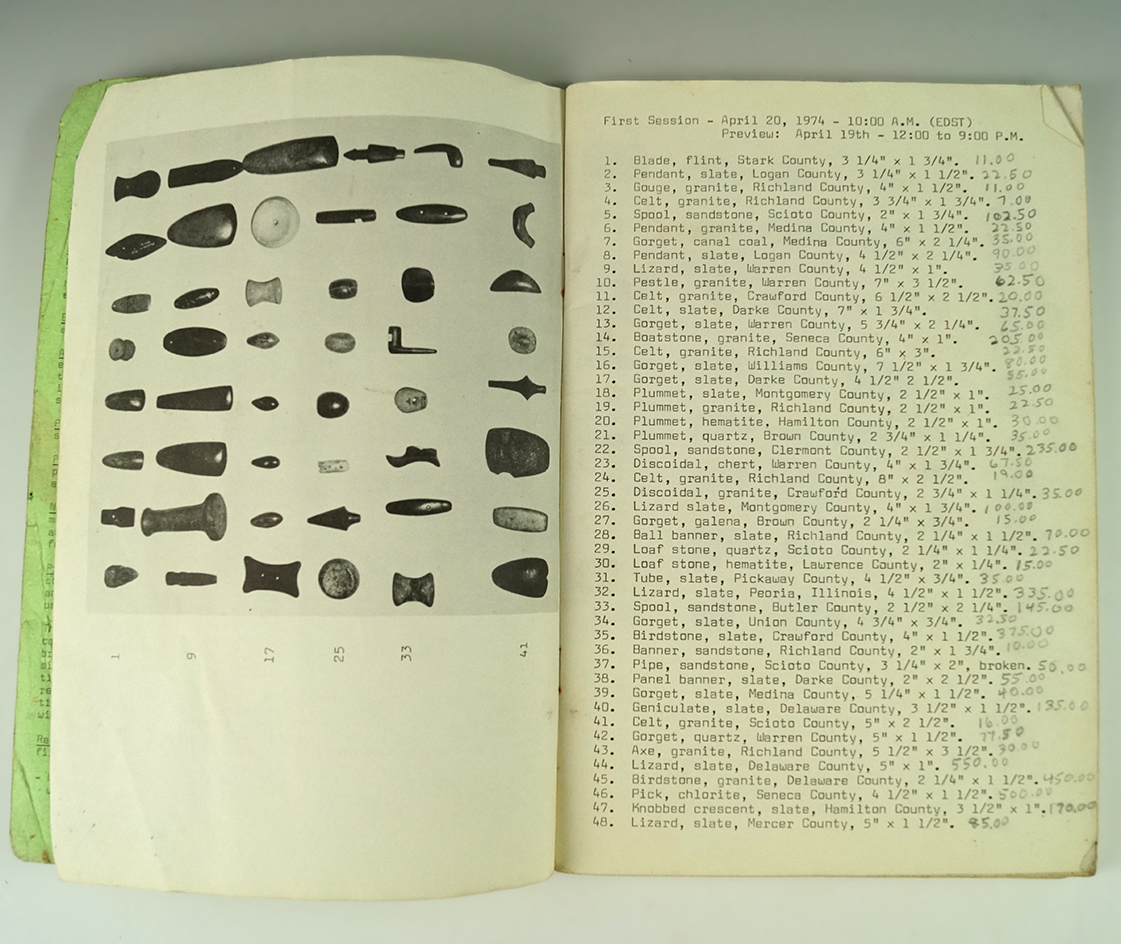 1
9
17
25
33
41
First Session - April 20, 1974 - 10:00 A.M. (EDST)
Preview: April 19th - 12:00 to 9:00 P.M.
1. Blade, flint, Stark County, 3 1/4" x 1 3/4". 11.00
2. Pendant, slate, Logan County, 3 1/4" x 1 1/2". 22.50
3. Gouge, granite, Richland County, 4" x 1 1/2". 11.00
4. Celt, granite, Richland County, 3 3/4" x 1 3/4". 7.00
5. Spool, sandstone, Scioto County, 2" x 1 3/4". 102.50
6. Pendant, granite, Medina County, 4" x 1 1/2". 22.50
7. Gorget, canal coal, Medina County, 6" x 2 1/4". 35.00
8. Pendant, slate, Logan County, 4 1/2" x 2 1/4". 90.00
9. Lizard, slate, Warren County, 4 1/2" x 1". 35.00
10. Pestle, granite, Warren County, 7" x 3 1/2". 62.50
11. Celt, granite, Crawford County, 6 1/2" x 2 1/2". 20.00
12. Celt, slate, Darke County, 7" x 1 3/4". 37.50
13. Gorget, slate, Warren County, 5 3/4" x 2 1/4". 65.00
14. Boatstone, granite, Seneca County, 4" x 1". 205.00
15. Celt, granite, Richland County, 6" x 3". 22.50
16. Gorget, slate, Williams County, 7 1/2" x 1 3/4". 80.00
17. Gorget, slate, Darke County, 4 1/2" 2 1/2". 55.00
18. Plummet, slate, Montgomery County, 2 1/2" x 1". 25.00
19. Plummet, granite, Richland County, 2 1/2" x 1". 22.50
20. Plummet, hematite, Hamilton County, 2 1/2" x 1". 30.00
21. Plummet, quartz, Brown County, 2 3/4" x 1 1/4". 35.00
22. Spool, sandstone, Clermont County, 2 1/2" x 1 3/4". 235.00
23. Discoidal, chert, Warren County, 4" x 1 3/4". 67.50
24. Celt, granite, Richland County, 8" x 2 1/2". 19.00
25. Discoidal, granite, Crawford County, 2 3/4" x 1 1/4". 35.00
26. Lizard slate, Montgomery County, 4" x 1 3/4". 100.00
27. Gorget, galena, Brown County, 2 1/4" x 3/4". 15.00
28. Ball banner, slate, Richland County, 2 1/4" x 1 1/2". 70.00
29. Loaf stone, quartz, Scioto County, 2 1/2" x 1 1/4". 22.50
30. Loaf stone, hematite, Lawrence County, 2" x 1 1/4". 15.00
31. Tube, slate, Pickaway County, 4 1/2" x 3/4". 35.00
32. Lizard, slate, Peoria, Illinois, 4 1/2" x 1 1/2". 335.00
33. Spool, sandstone, Butler County, 2 1/2" x 2 1/4". 145.00
34. Gorget, slate, Union County, 4 3/4" x 3/4". 32.50
35. Birdstone, slate, Crawford County, 4" x 1 1/2". 375.00
36. Banner, sandstone, Richland County, 2" x 1 3/4". 10.00
37. Pipe, sandstone, Scioto County, 3 1/4" x 2", broken. 50.00
38. Panel banner, slate, Darke County, 2" x 2 1/2". 55.00
39. Gorget, slate, Medina County, 5 1/4" x 1 1/2". 40.00
40. Geniculate, slate, Delaware County, 3 1/2" x 1 1/2". 135.00
41. Celt, granite, Scioto County, 5" x 2 1/2". 16.00
42. Gorget, quartz, Warren County, 5" x 1 1/2". 77.50
43. Axe, granite, Richland County, 5 1/2" x 3 1/2". 30.00
44. Lizard, slate, Delaware County, 5" x 1". 550.00
45. Birdstone, granite, Delaware County, 2 1/4" x 1 1/2". 450.00
46. Pick, chlorite, Seneca County, 4 1/2" x 1 1/2". 500.00
47. Knobbed crescent, slate, Hamilton County, 3 1/2" x 1". 170.00
48. Lizard, slate, Mercer County, 5" x 1 1/2". 85.00